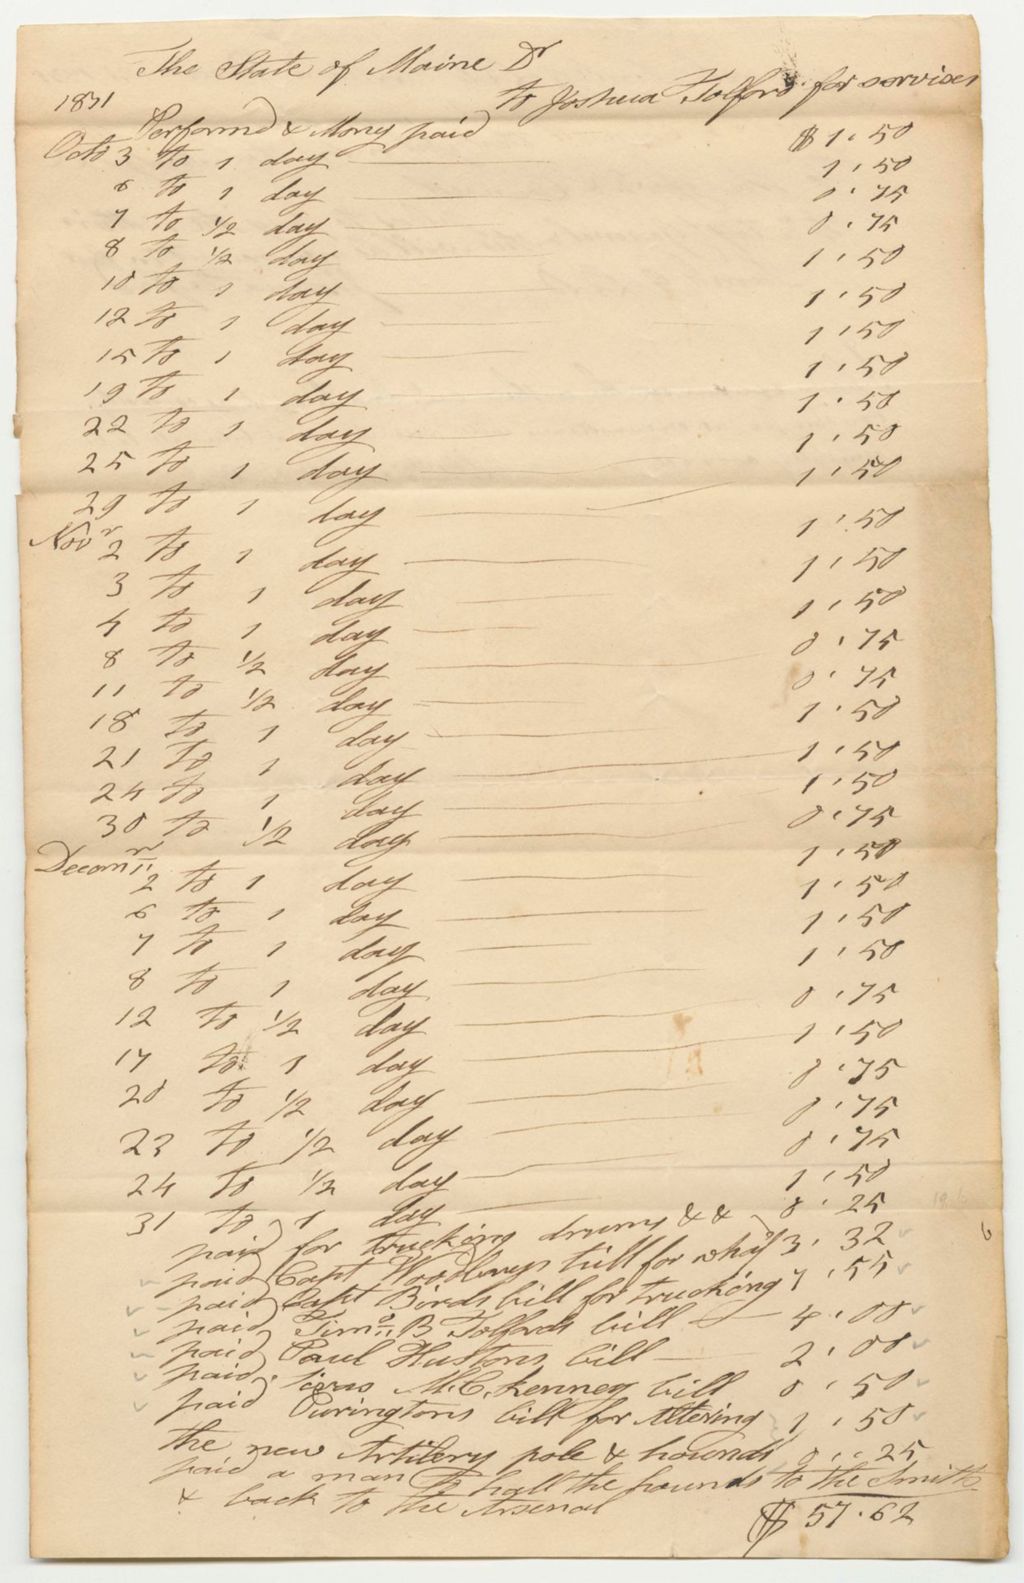 The State of Maine Dr
1831 to Joshua Tolford for services
Performd & Mony paid
Octo 3 to 1 day $1.50
6 to 1 day 1.50
7 to 1/2 day 0.75
8 to 1/2 day 0.75
10 to 1 day 1.50
12 to 1 day 1.50
15 to 1 day 1.50
19 to 1 day 1.50
22 to 1 day 1.50
25 to 1 day 1.50
29 to 1 day 1.50
Novr 2 to 1 day 1.50
3 to 1 day 1.50
4 to 1 day 1.50
8 to 1/2 day 0.75
11 to 1/2 day 0.75
18 to 1 day 1.50
21 to 1 day 1.50
24 to 1 day 1.50
30 to 1/2 day 0.75
Decemr 2 to 1 day 1.50
6 to 1 day 1.50
7 to 1 day 1.50
8 to 1 day 1.50
12 to 1/2 day 0.75
17 to 1 day 1.50
20 to 1/2 day 0.75
23 to 1/2 day 0.75
24 to 1/2 day 0.75
31 to 1 day 1.50
paid for trucking drums & & 0.25
paid Capt Woodburys bill for whaf 3.32
paid Capt Birds bill for trucking 7.55
paid Timo B Tolfords bill 4.00
paid Paul Hustons bill 2.00
paid M.C. kenney bill 0.50
paid Puringtons bill for Altering 1.50
the new Artilery pole & hounds 0.25
paid a man to hall the hounds to the Smith
& back to the Arsenal
$57.62